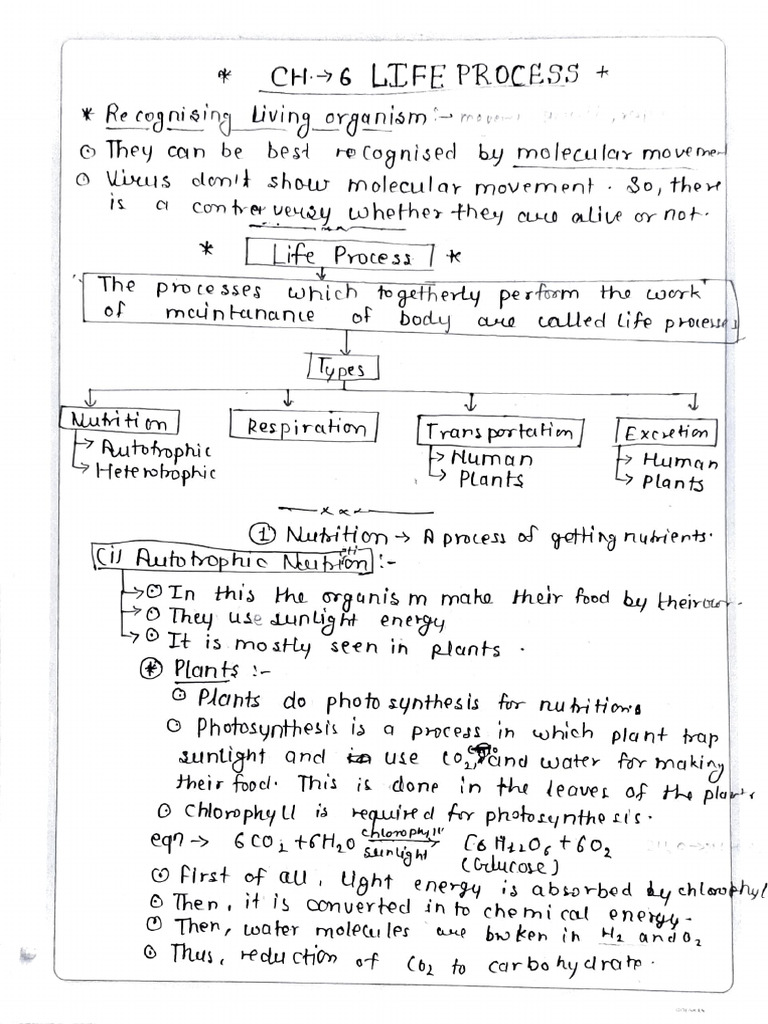 * CH.→ 6 LIFE PROCESS +
* Recognising Living organism :-
⊙ They can be best recognised by molecular movemen
⊙ Virus don't show molecular movement. So, there
is a controversy whether they are alive or not.
* Life Process *
The processes which togetherly perform the work
of maintanance of body are called life processes
Types
Nutrition Respiration Transportation Excretion
→ Autotrophic → Human → Human
→ Heterotrophic → Plants → Plants
① Nutrition → A process of getting nutrients.
(i) Autotrophic Nutrition :-
→ ⊙ In this the organism make their food by their own.
→ ⊙ They use sunlight energy
→ ⊙ It is mostly seen in plants.
* Plants :-
⊙ Plants do photosynthesis for nutritions
⊙ Photosynthesis is a process in which plant trap
sunlight and use CO2, and water for making
their food. This is done in the leaves of the plants
⊙ Chlorophyll is required for photosynthesis.
eqn → 6CO2 + 6H2O chlorophyll → sunlight C6H12O6 + 6O2
(Glucose)
⊙ First of all, light energy is absorbed by chlorophyl
⊙ Then, it is converted in to chemical energy.
⊙ Then, water molecules are broken in H2 and O2
⊙ Thus, reduction of CO2 to carbohydrate.